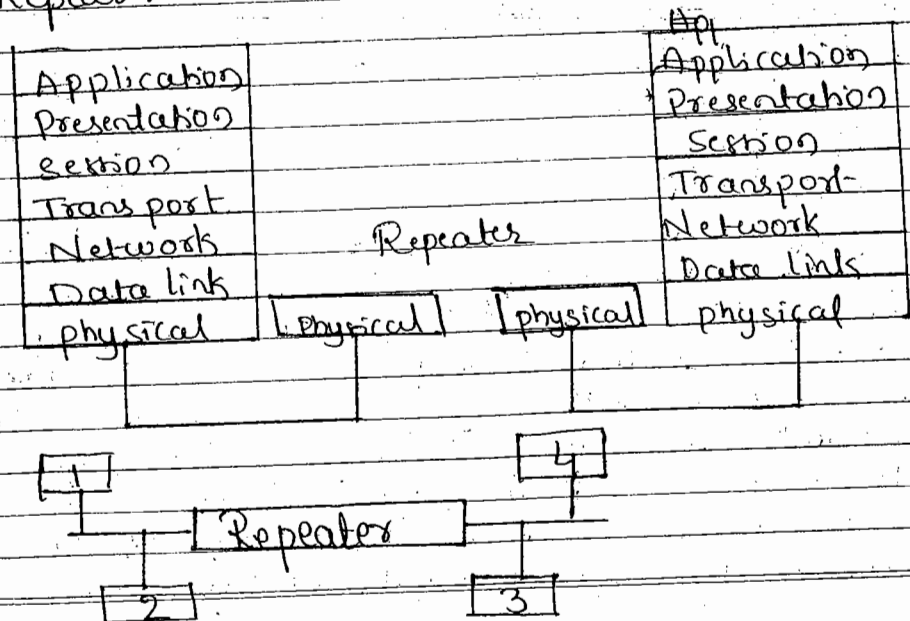 Repeater
Application
Presentation
Session
Transport
Network
Data link
physical
Repeater
Physical
physical
App
Application
Presentation
Session
Transport
Network
Data link
physical
1
4
Repeater
2
3